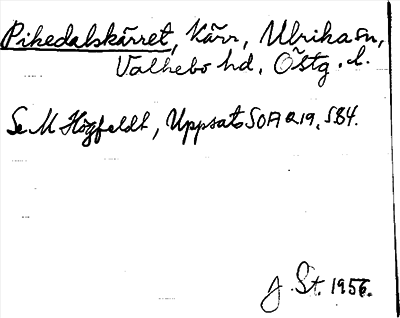 Pikedalskärret, Kärr, Ulrika sn,
Valkebo hd, Östg. l.
Se M Högfeldt, Uppsats SOFI a 19, s 84.
J. St. 1956.